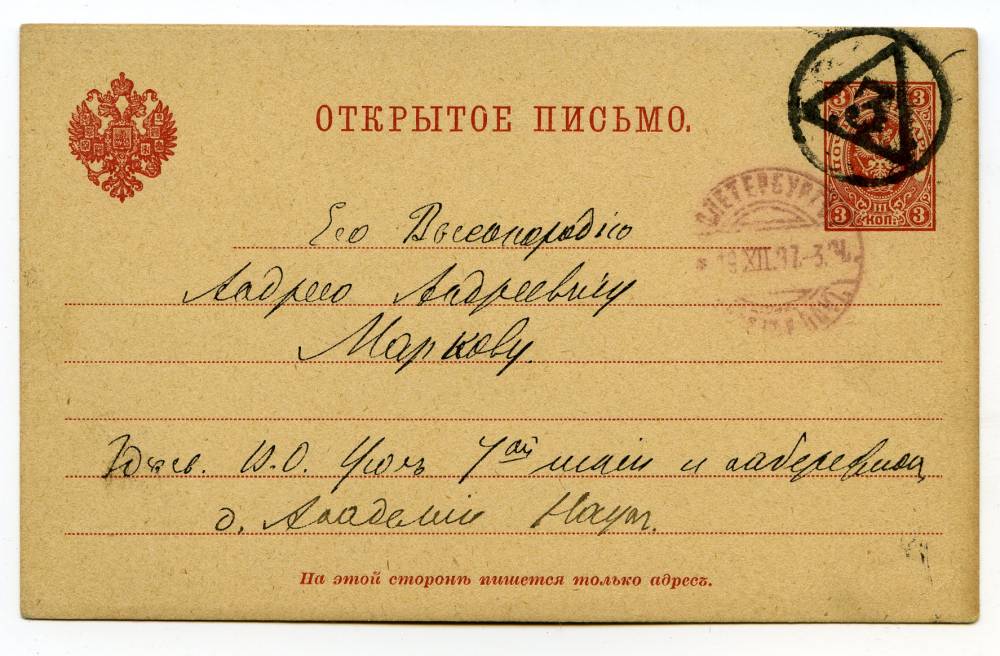 ОТКРЫТОЕ ПИСЬМО.
3 3
III
3 КОП. 3
3
С.ПЕТЕРБУРГЪ
19 XII.97.-3.
Его Высокородію
Андрею Андреевичу
Маркову
Здѣсь. В.О. Уголъ 7ой линіи и набережной
д. Академіи Наукъ.
На этой сторонѣ пишется только адресъ.